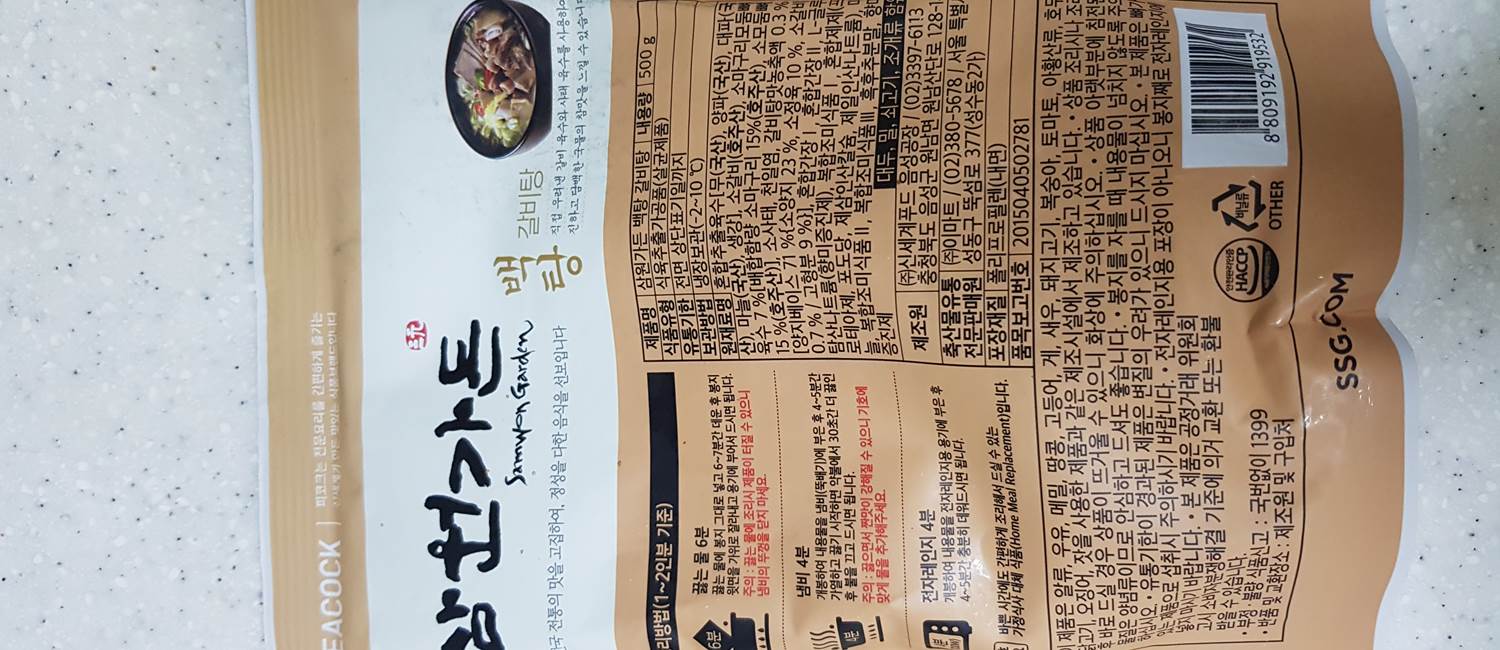 EACOCK | 피코크는 전문요리를 간편하게 즐기는
삼원가든
Samwon Garden
백탕 갈비탕
전통의 맛을 고집하여, 정성을 다한 음식을 선보입니다
직접 우려낸 갈비 육수와 사태 육수를 사용하여
진하고 담백한 국물의 참맛을 느낄 수 있습니다
리방법(1~2인분 기준)
6분
끓는 물 6분
끓는 물에 봉지 그대로 넣고 6~7분간 데운 후 봉지
윗면을 가위로 잘라내고 용기에 부어서 드시면 됩니다.
주의 : 끓는 물에 조리시 제품이 터질 수 있으니
냄비의 뚜껑을 닫지 마세요.
4분
냄비 4분
개봉하여 내용물을 냄비(뚝배기)에 부은 후 4~5분간
가열하고 끓기 시작하면 약불에서 30초간 더 끓인
후 불을 끄고 드시면 됩니다.
주의 : 끓으면서 짠맛이 강해질 수 있으니 기호에
맞게 물을 추가해주세요.
전자레인지 4분
개봉하여 내용물을 전자레인지용 용기에 부은 후
4~5분간 충분히 데워드시면 됩니다.
바쁜 시간에도 간편하게 조리해서 드실 수 있는
가정식사 대체 식품(Home Meal Replacement)입니다.
제품명 삼원가든 백탕 갈비탕 내용량 500 g
식품유형 식육추출가공품(살균제품)
유통기한 전면 상단표기일까지
보관방법 냉장보관(-2~10 ℃)
원재료명 혼합추출육수무(국산), 양파(국산), 대파(국
산), 마늘(국산), 생강], 소갈비(호주산), 소마구리모듬뼈
육수 7 %[배합함량 소마구리 15%(호주산), 소모듬뼈
15 %(호주산)], 소사태, 천일염, 갈비탕맛충축액 0.3 %
[양지베이스 71 %(소양지 23 %, 소정육 10 %, 소갈비
0.7 % / 고형분 9 %)], 혼합간장 I, 혼합간장 II, L-글루
탐산나트륨(향미증진제), 복합조미식품 I, 혼합제제(프
로테아제, 포도당, 제삼인산칼슘, 제일인산나트륨), 마
늘, 복합조미식품 II, 복합조미식품 III, 흑후추분말, 향미
증진제
대두, 밀, 쇠고기, 조개류 함
제조원 (주)신세계푸드 음성공장 / (02)3397-6113
충청북도 음성군 원남면 원남산단로 128-1
축산물유통전문판매원 (주)이마트 / (02)380-5678 / 서울특별
성동구 뚝섬로 377(성수동2가)
포장재질 폴리프로필렌(내면)
품목보고번호 2015040502781
제품은 알류, 우유, 메밀, 땅콩, 고등어, 게, 새우, 돼지고기, 복숭아, 토마토, 아황산류, 호두
고기, 오징어, 잣을 사용한 제품과 같은 제조시설에서 제조하고 있습니다. • 상품 조리시나 조리
후 바로 드실 경우 상품이 뜨거울 수 있으니 화상에 주의하십시오. • 상품 아랫부분에 침전된
물질은 양념류이므로 안심하고 드셔도 좋습니다. • 봉지를 자를 때 내용물이 넘치지 않도록 주의
하십시오. • 유통기한이 경과된 제품은 변질의 우려가 있으니 드시지 마십시오. • 본 제품은 뼈가
있는 제품으로 섭취시 주의하시기 바랍니다. • 전자레인지용 포장이 아니오니 봉지째로 전자레인지에
넣지마시기 바랍니다. • 본 제품은 공정거래 위원회
고시 소비자분쟁해결 기준에 의거 교환 또는 환불
받을 수 있습니다.
• 부정 · 불량 식품신고 : 국번없이 1399
• 반품 및 교환장소 : 제조원 및 구입처
HACCP
비닐류
OTHER
8 809192 919532
SSG.COM